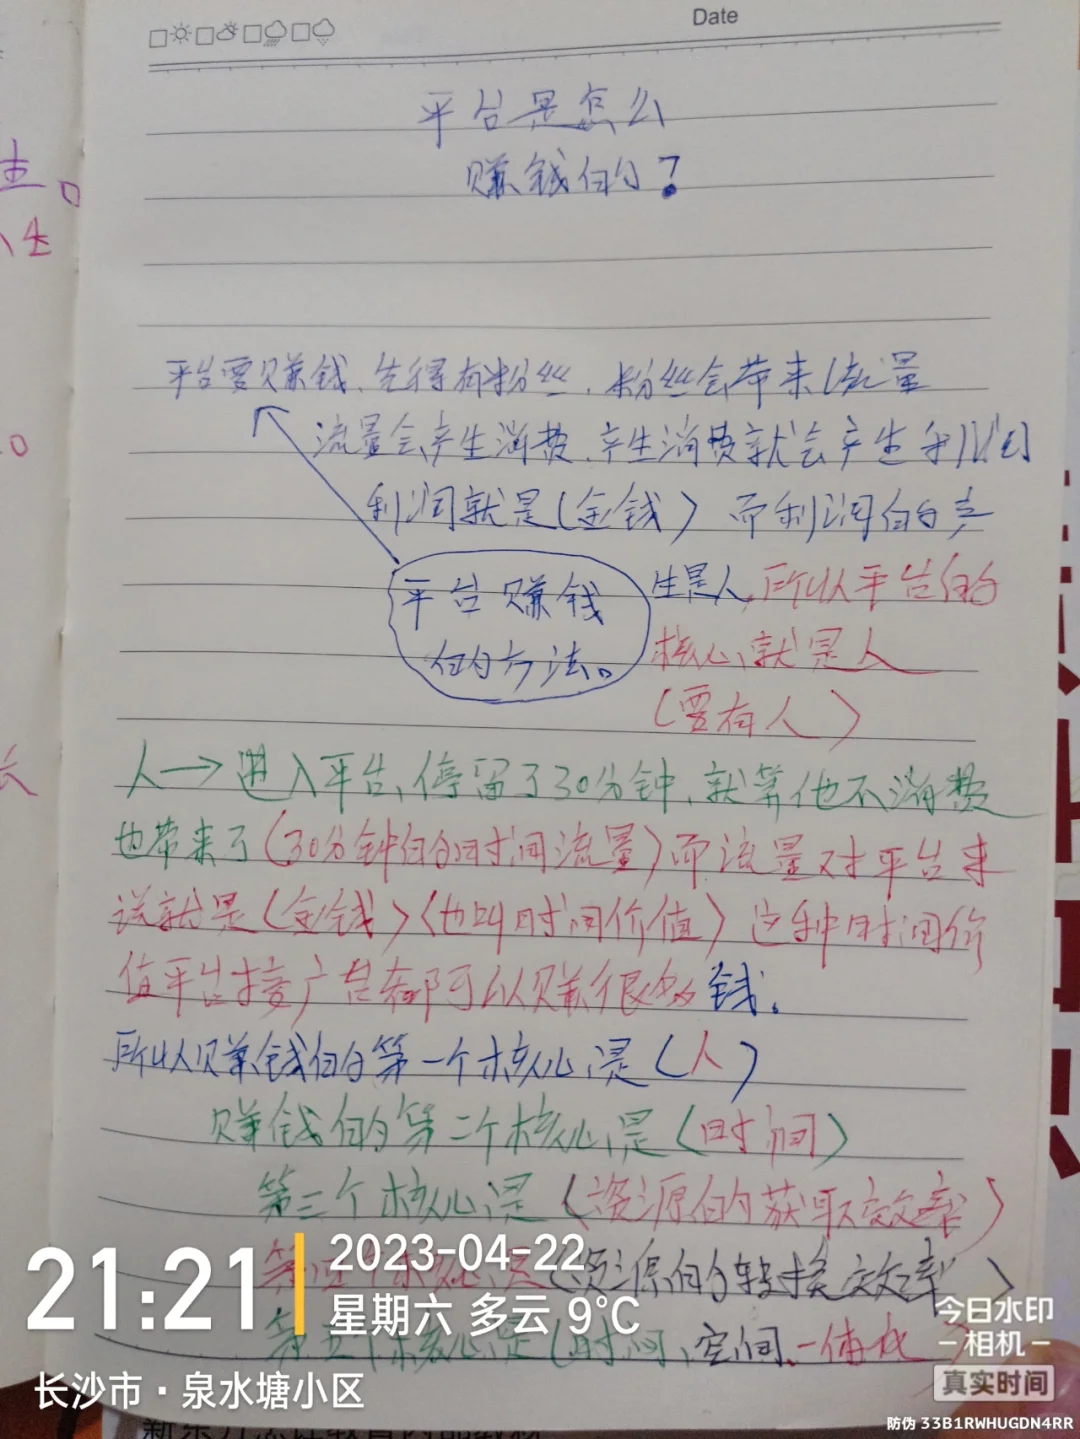 Date
平台是怎么
赚钱的?
平台要赚钱、先得有粉丝、粉丝会带来流量
流量会产生消费、产生消费就会产生利润
利润就是(金钱) 而利润的产
平台赚钱
的方法。
生是人,所以平台的
核心就是人
(要有人)
人→进入平台、停留了30分钟、就算他不消费
也带来了(30分钟的时间流量)而流量对平台来
说就是(金钱)(也叫时间价值)这种时间价
值平台接广告都可以赚很多钱。
所以赚钱的第一个核心是(人)
赚钱的第二个核心是(时间)
第三个核心是(资源的获取效率)
第四个核心是(资源的转换效率)
第五个核心是(时间、空间、一体化)
21:21
2023-04-22
星期六 多云 9°C
长沙市·泉水塘小区
今日水印
-相机-
真实时间
防伪 33B1RWHUGDN4RR